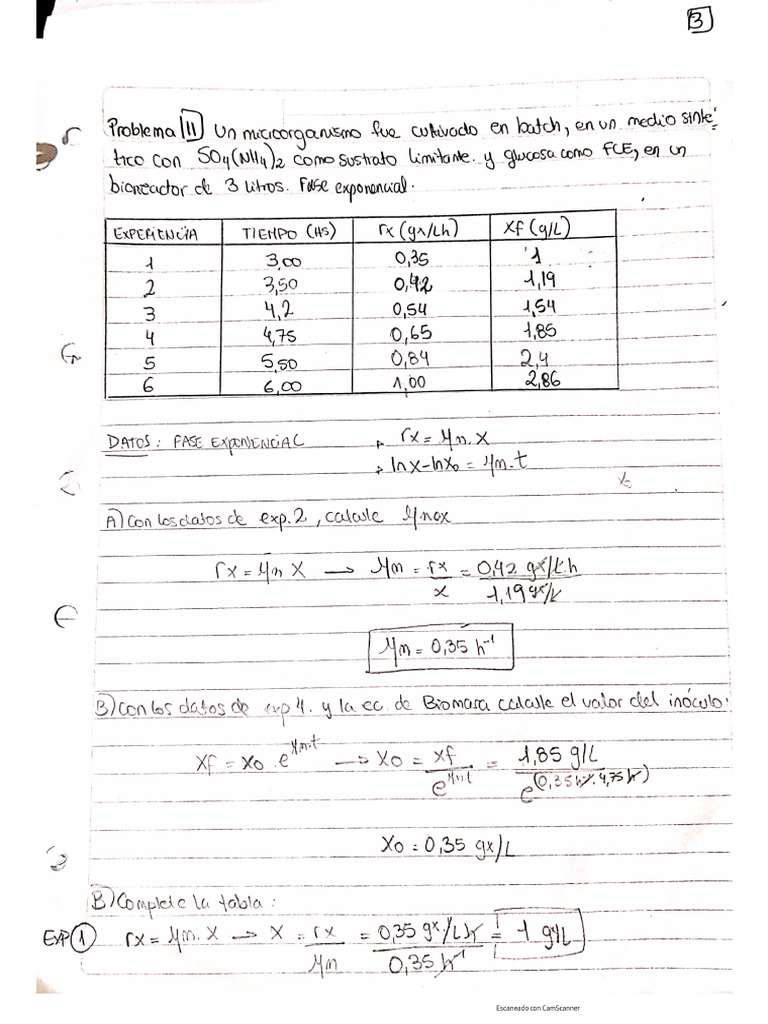 3
Problema 11 Un microorganismo fue cultivado en batch, en un medio sinté-
tico con SO4(NH4)2 como sustrato limitante y glucosa como FCE, en un
biorreactor de 3 litros. Fase exponencial.
EXPERIENCIA TIEMPO (HS) rx (gx/Lh) Xf (g/L)
1 3,00 0,35 1
2 3,50 0,42 1,19
3 4,2 0,54 1,54
4 4,75 0,65 1,85
5 5,50 0,84 2,4
6 6,00 1,00 2,86
DATOS: FASE EXPONENCIAL rx = μm.X
lnx-lnx0 = μm.t
A) Con los datos de exp.2, calcule μmax
rx = μm X → μm = rx/x = 0,42 gx/L.h / 1,19 gx/L
μm = 0,35 h⁻¹
B) Con los datos de exp 4. y la ec. de Biomasa calcule el valor del inóculo:
Xf = X0 . e^μm.t → X0 = Xf/e^μm.t = 1,85 g/L / e^(0,35 h⁻¹. 4,75 h)
X0 = 0,35 gx/L
B) Complete la tabla:
EXP 1 rx = μm. X → X = rx/μm = 0,35 gx/L h / 0,35 h⁻¹ = 1 g/L
Escaneado con CamScanner